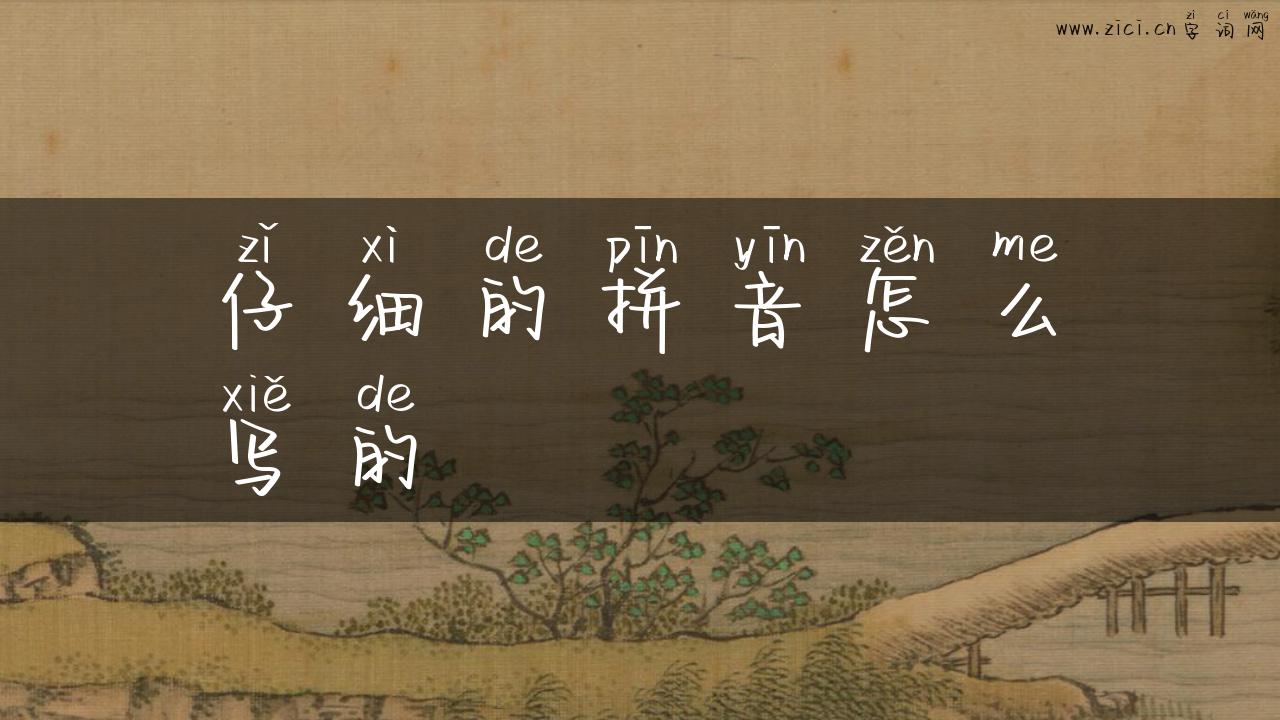 zì cí wǎng
www.zici.cn 字 词 网
zǐ xì de pīn yīn zěn me
仔 细 的 拼 音 怎 么
xiě de
写 的